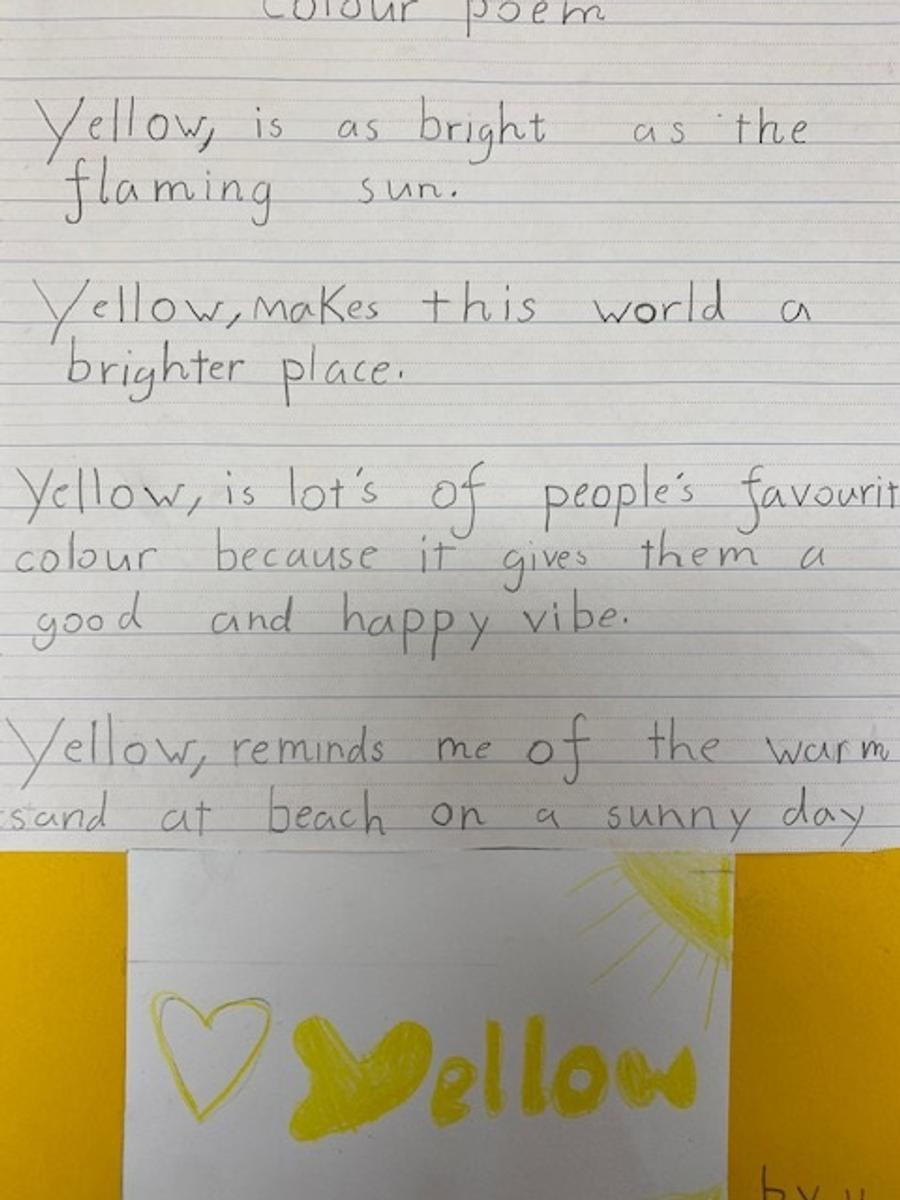 colour poem
Yellow, is as bright as the
flaming sun.
Yellow, makes this world a
brighter place.
Yellow, is lot's of people's favourit
colour because it gives them a
good and happy vibe.
Yellow, reminds me of the warm
sand at beach on a sunny day
Yellow
by